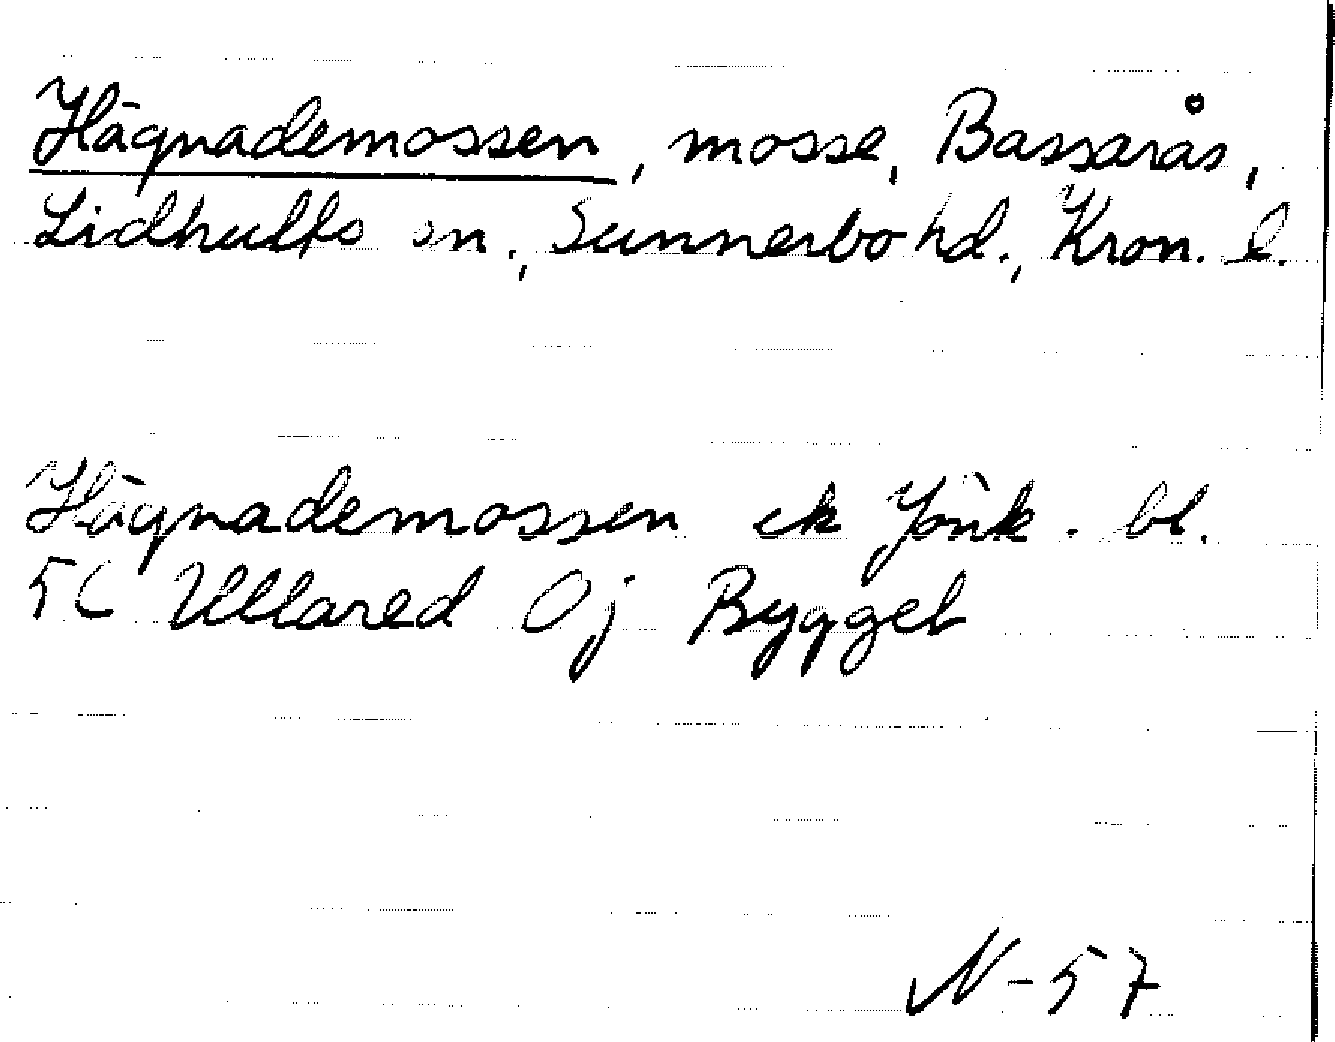 Hägnademossen, mosse, Bassarås,
Lidhults sn., Sunnerbo hd., Kron. l.
Hägnademossen ek Jönk. bl.
5C Ullared Oj Bygget
N-57